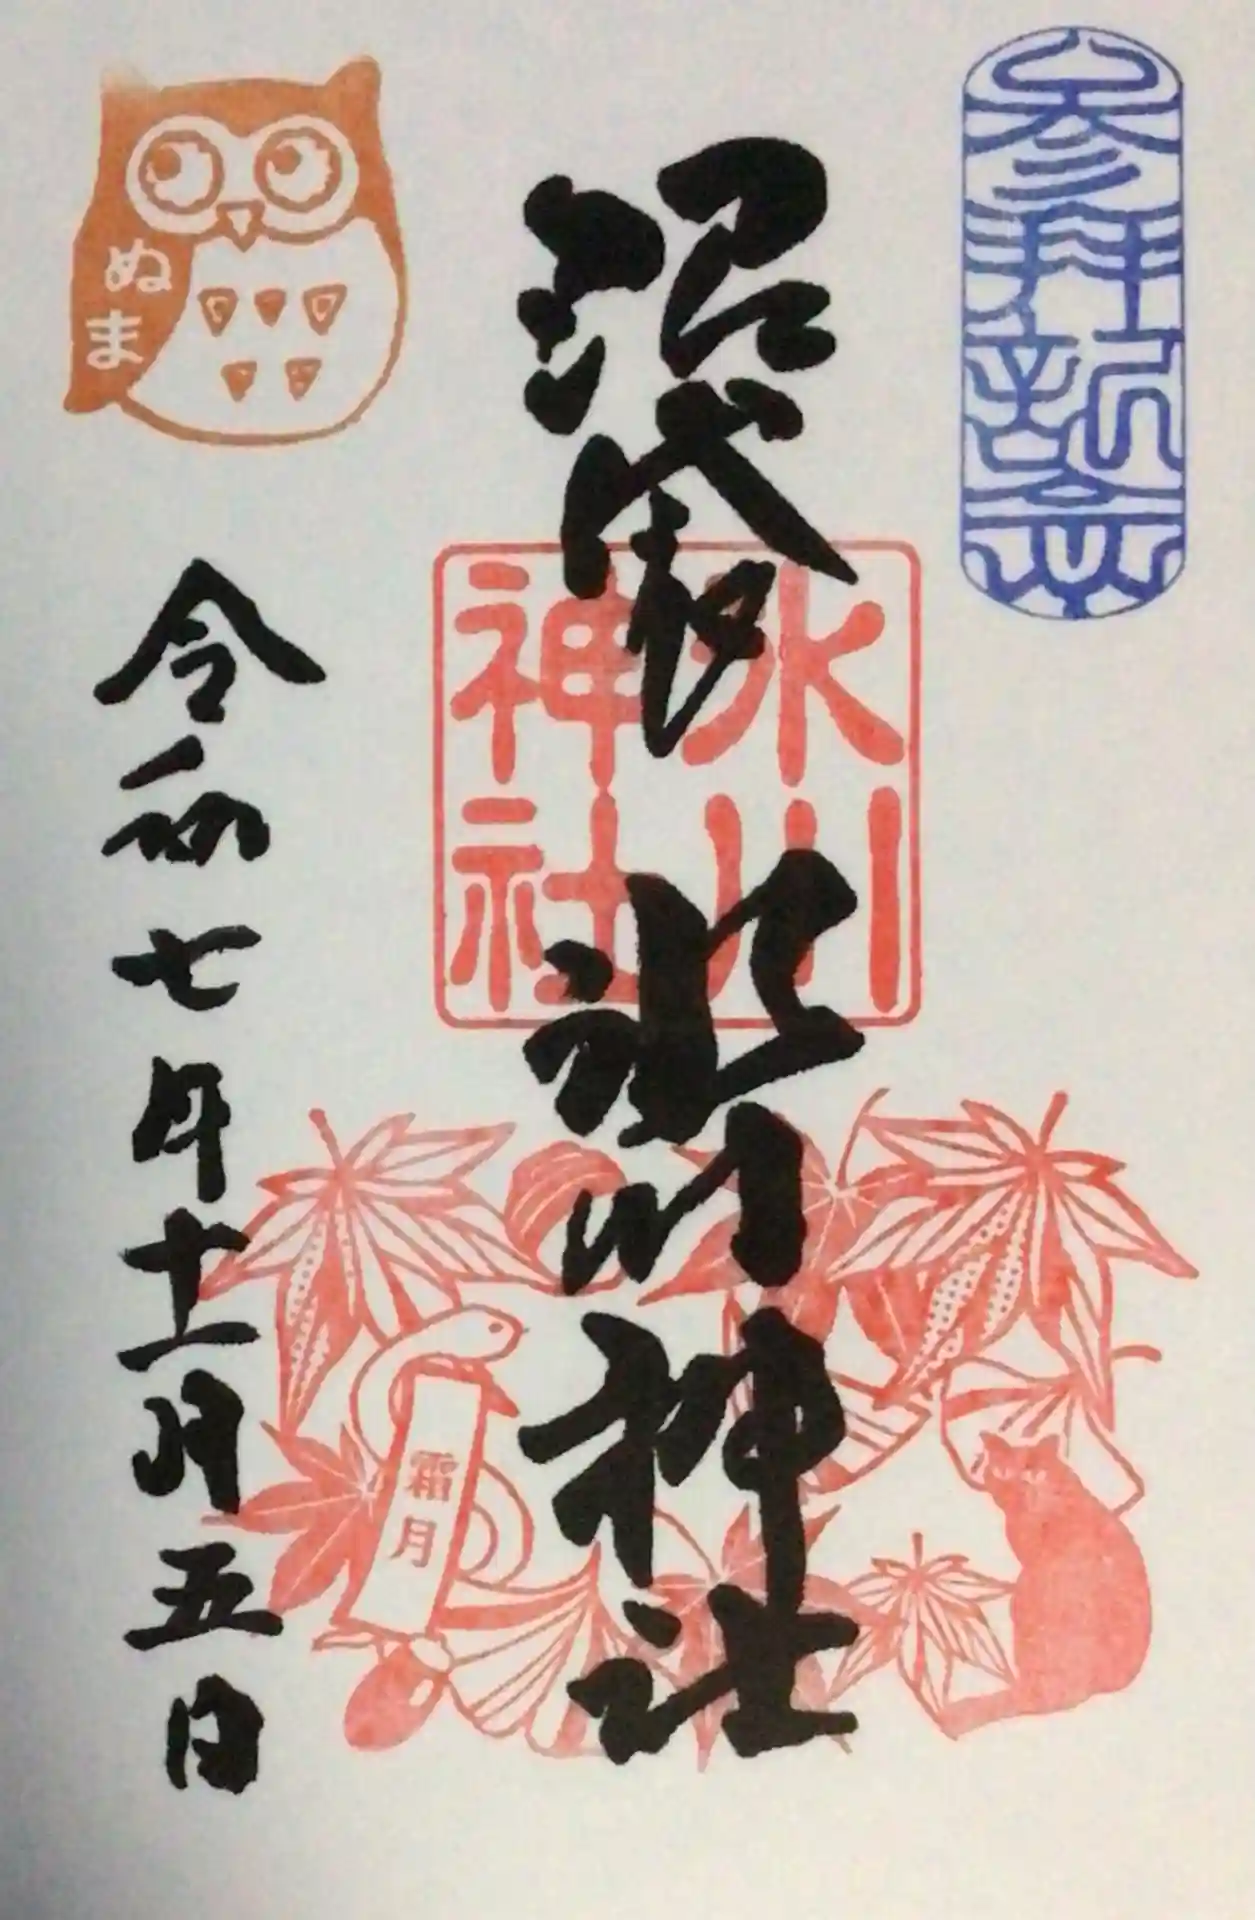 参拝記念
沼袋
氷川神社
氷川
神社
霜月
ぬま
令和七年十一月五日